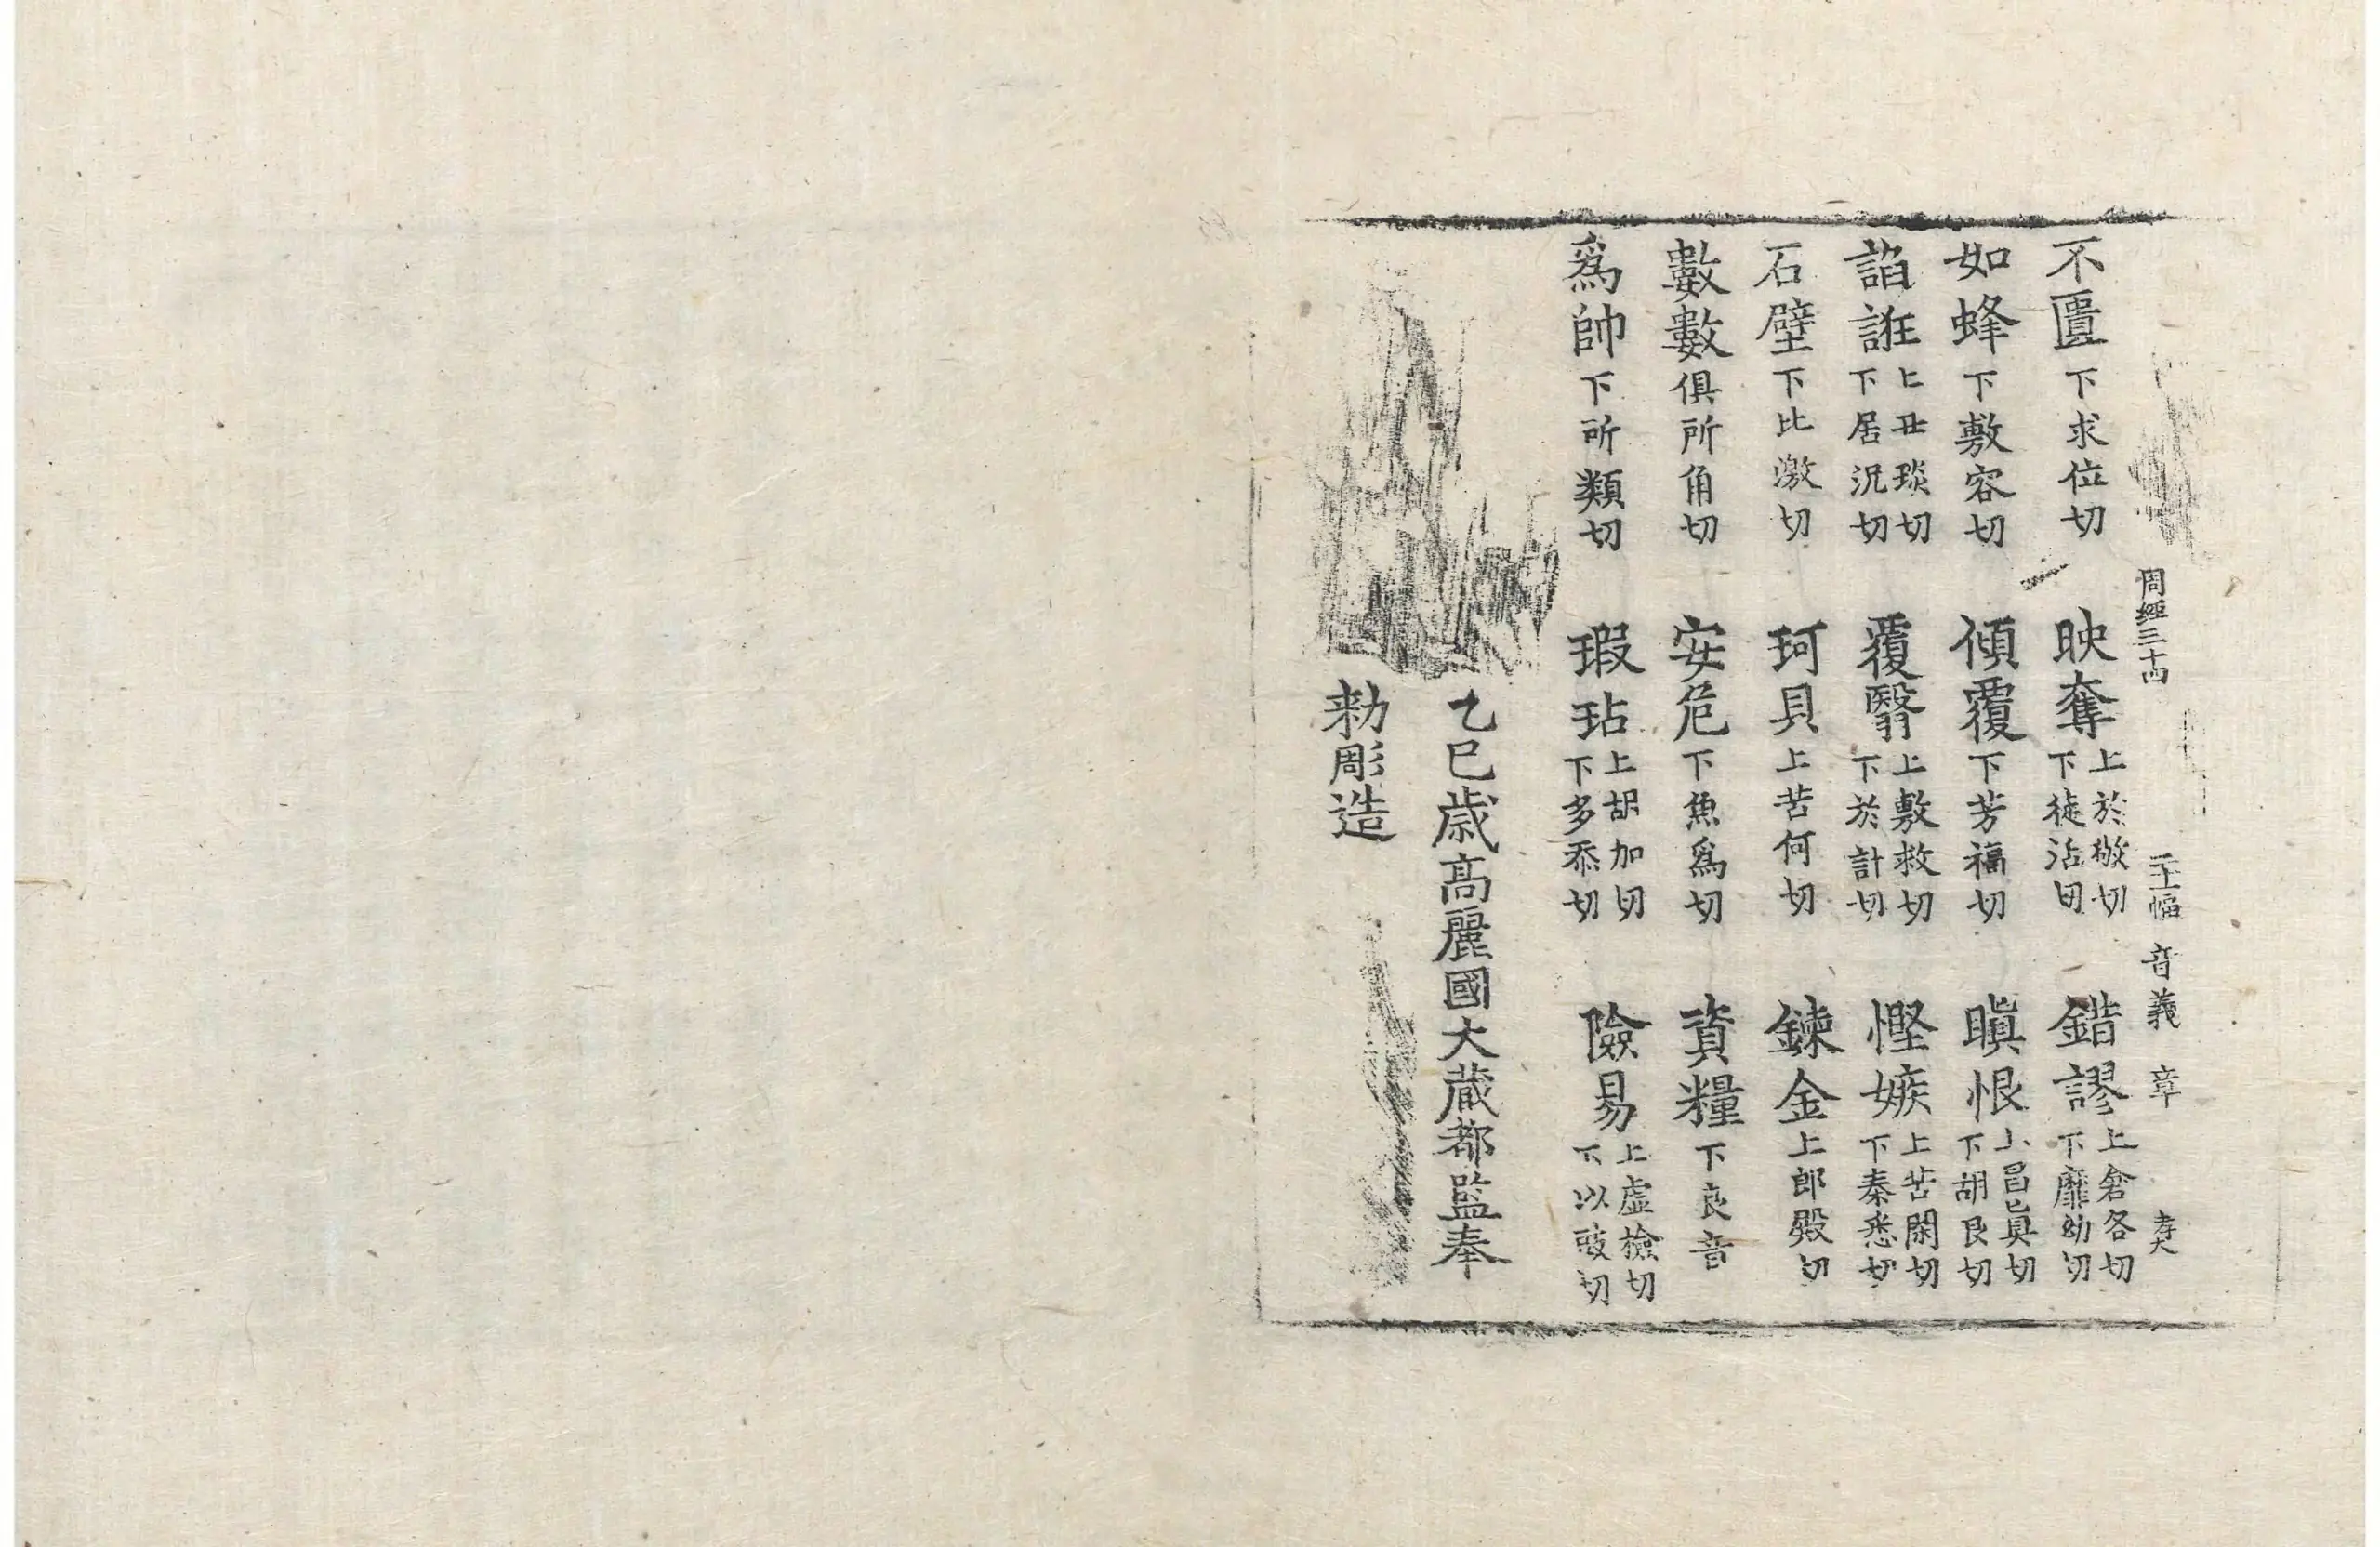 周經三十四 二十幅 音義 章 孝大
不匱下求位切 映奪上於敬切下徒活切 錯謬上倉各切下靡幼切
如蜂下敷容切 傾覆下芳福切 瞋恨上昌眞切下胡艮切
諂誑上丑琰切下居況切 覆翳上敷救切下於計切 慳嫉上苦閑切下秦悉切
石壁下比激切 珂貝上苦何切 鍊金上郎殿切
數數俱所角切 安危下魚爲切 資糧下良音
爲帥下所類切 瑕玷上胡加切下多忝切 險易上虛檢切下以豉切
乙巳歲高麗國大藏都監奉
勅彫造